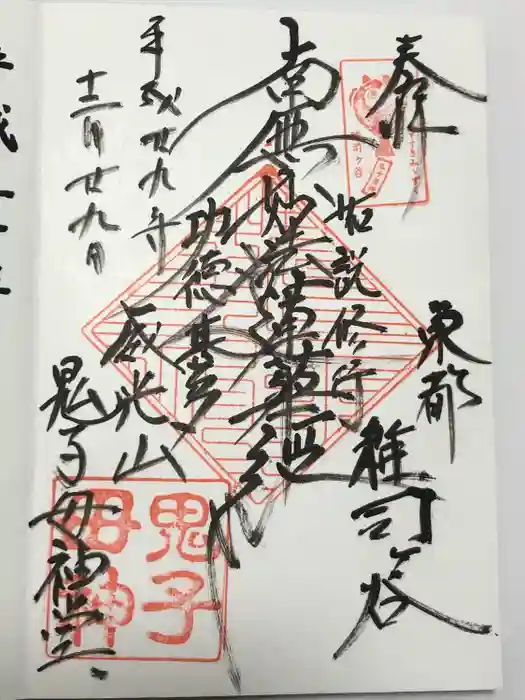 奉拝
東都
雑司ヶ谷
如説修行
南無妙法蓮華経
功徳甚多
威光山
鬼子母神堂
平成廿九年
十二月廿九日
鬼子
母神